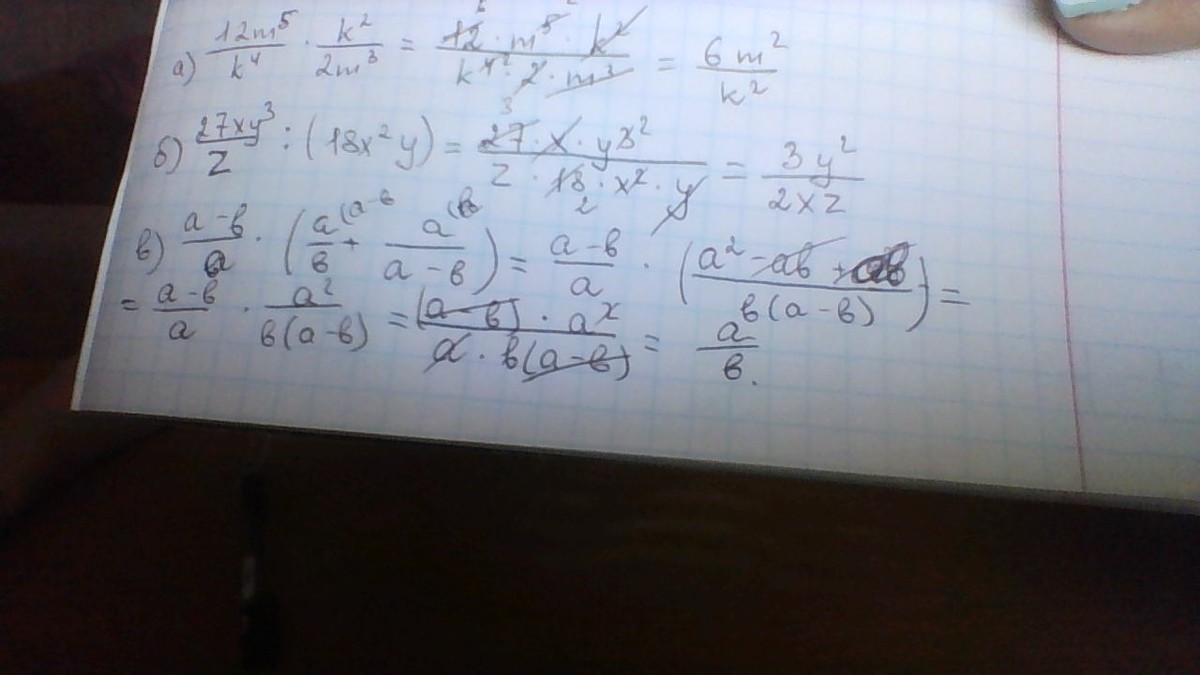 а) 12m⁵/k⁴ · k²/2m³ = 12 · m⁵ · k²/k⁴ · 2 · m³ = 6m²/k²
б) 27xy³/z : (18x²y) = 27 · x · y³/z · 18 · x² · y = 3y²/2xz
в) a-в/a · (a/в + a/a-в) = a-в/a · (a²-aв+aв/в(a-в)) =
= a-в/a · a²/в(a-в) = (a-в) · a²/a · в(a-в) = a/в.